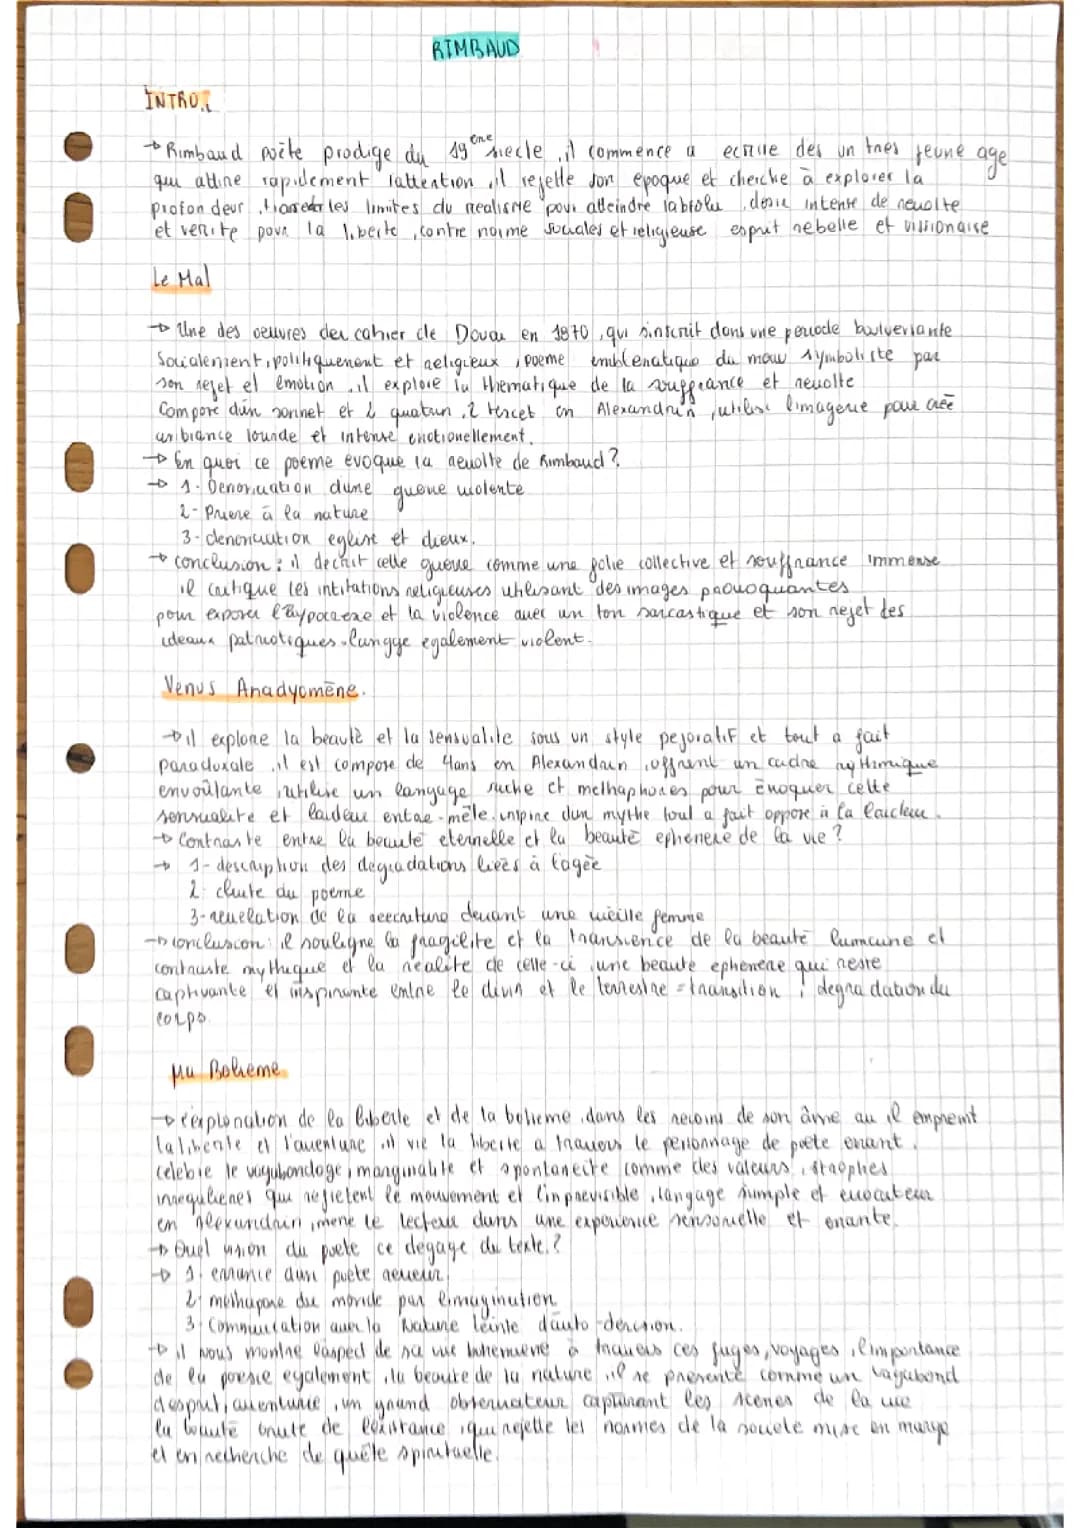 RIMBAUD
INTRO:
→ Rimbaud poète prodige du 19ème siecle, il commence a ecrire des un tres jeune age
qui attire rapidement lattention, il rejette son epoque et cherche à explorer la
profondeur, les limites du realisme pour atteindre labsolu, desir intense de revolte
et verite pour la liberte, contre norme sociales et religieuse esprit rebelle et vissionaire
Le Mal
→ Une des oeuvres des cahier de Douai en 1870, qui sinscrit dans une periode bouleversante
Socialement, politiquement et religieux, poeme emblematique du mouv symboliste par
son rejet et emotion, il explore la thematique de la souffrance et revolte
Compore dun sonnet et 2 quatrin, 2 tercet en Alexandrin, utilise limagerie pour crée
ambiance lourde et intense emotionellement.
→ En quoi ce poeme evoque la revolte de Rimbaud?
→ 1- Denonciation dune guerre violente
2- Priere à la nature
3- denonciation eglise et dieux.
→ conclusion: il decrit cette guerre comme une folie collective et souffrance immense
il critique les religieuses utilisant des images provoquantes
pour exposer et la violence avec un ton sarcastique et son rejet des
ideaux patriotiques. langge egalement violent.
Venus Anadyomène.
→ il explore la beauté et la sensualite sous un style pejoratif et tout a fait
paradoxale, il est compose de en Alexandrin, offrent un cadre rythmique
envoûtante, utilise un langage riche et methaphores pour évoquer cette
sensualite et laideur entre-mêle, inspire dun mythe tout a fait oppose à la laideur.
→ Contraste entre la beauté eternelle et la beauté ephemere de la vie?
→ 1- description des degradations liées à lagée
2. chute du poeme
3- revelation de la devant une vieille femme
→ conclusion: il souligne la fragilite et la transience de la beauté humaine et
contraste mythique et la realite de celle-ci, une beaute ephemere qui reste
captivante et inspirante entre le divin et le terrestre = transition, degradation du
corps
Ma Boheme
→ l'exploration de la liberte et de la boheme, dans les recoins de son âme ou il empreint
la liberte et l'aventure, il vie la liberte a travers le personnage de poète errant.
celebre le vagabondage, marginalite et spontaneite comme des valeurs, strophes
irregulieres qui refletent le mouvement et linprevisible, langage simple et evocateur
en Alexandrin, mene le lecteur dans une experience sensorielle et errante.
→ Quel vision du poete ce degage du texte?
→ 1. errance dun poète reveur.
2. methapore du monde par limagination
3. Communication avec la Nature teinte dauto-derision.
→ il nous montre laspect de sa vie bohemienne à travers ces fuges, voyages, limportance
de la poesie egalement, la beaute de la nature, il se presente comme un vagabond
desprit, aventurie, un grand observateur capturant les scenes de la vie
la beauté brute de lexistance, qui rejette les normes de la societe mise en marge
et en recherche de quête spirituelle.